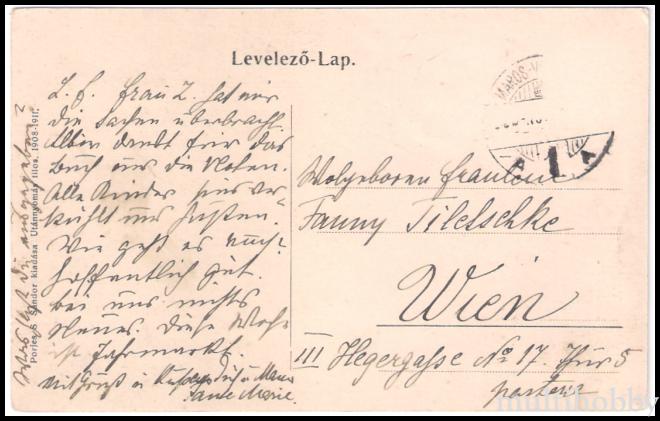 Levelező-Lap.
L. F. Frau Z. hat mir
die Sachen überbracht.
Albin dankt für das
Buch und die Noten.
Alle Kinder sind ver-
kühlt und husten.
Wie geht es euch?
Hoffentlich gut.
bei uns nichts
Neues. Diese Woche
ist Jahrmarkt.
Mit Gruß u Kuß an Dich u Mama
Tante Marie.
Porjes S. Sándor kiadása Utánnyomás tilos. 1908-1911.
MAROS-V
1
A A
Wolgeboren Fraulein
Fanny Tiletschke
Wien
III Hegergasse No 17. Thür 5
multihobby